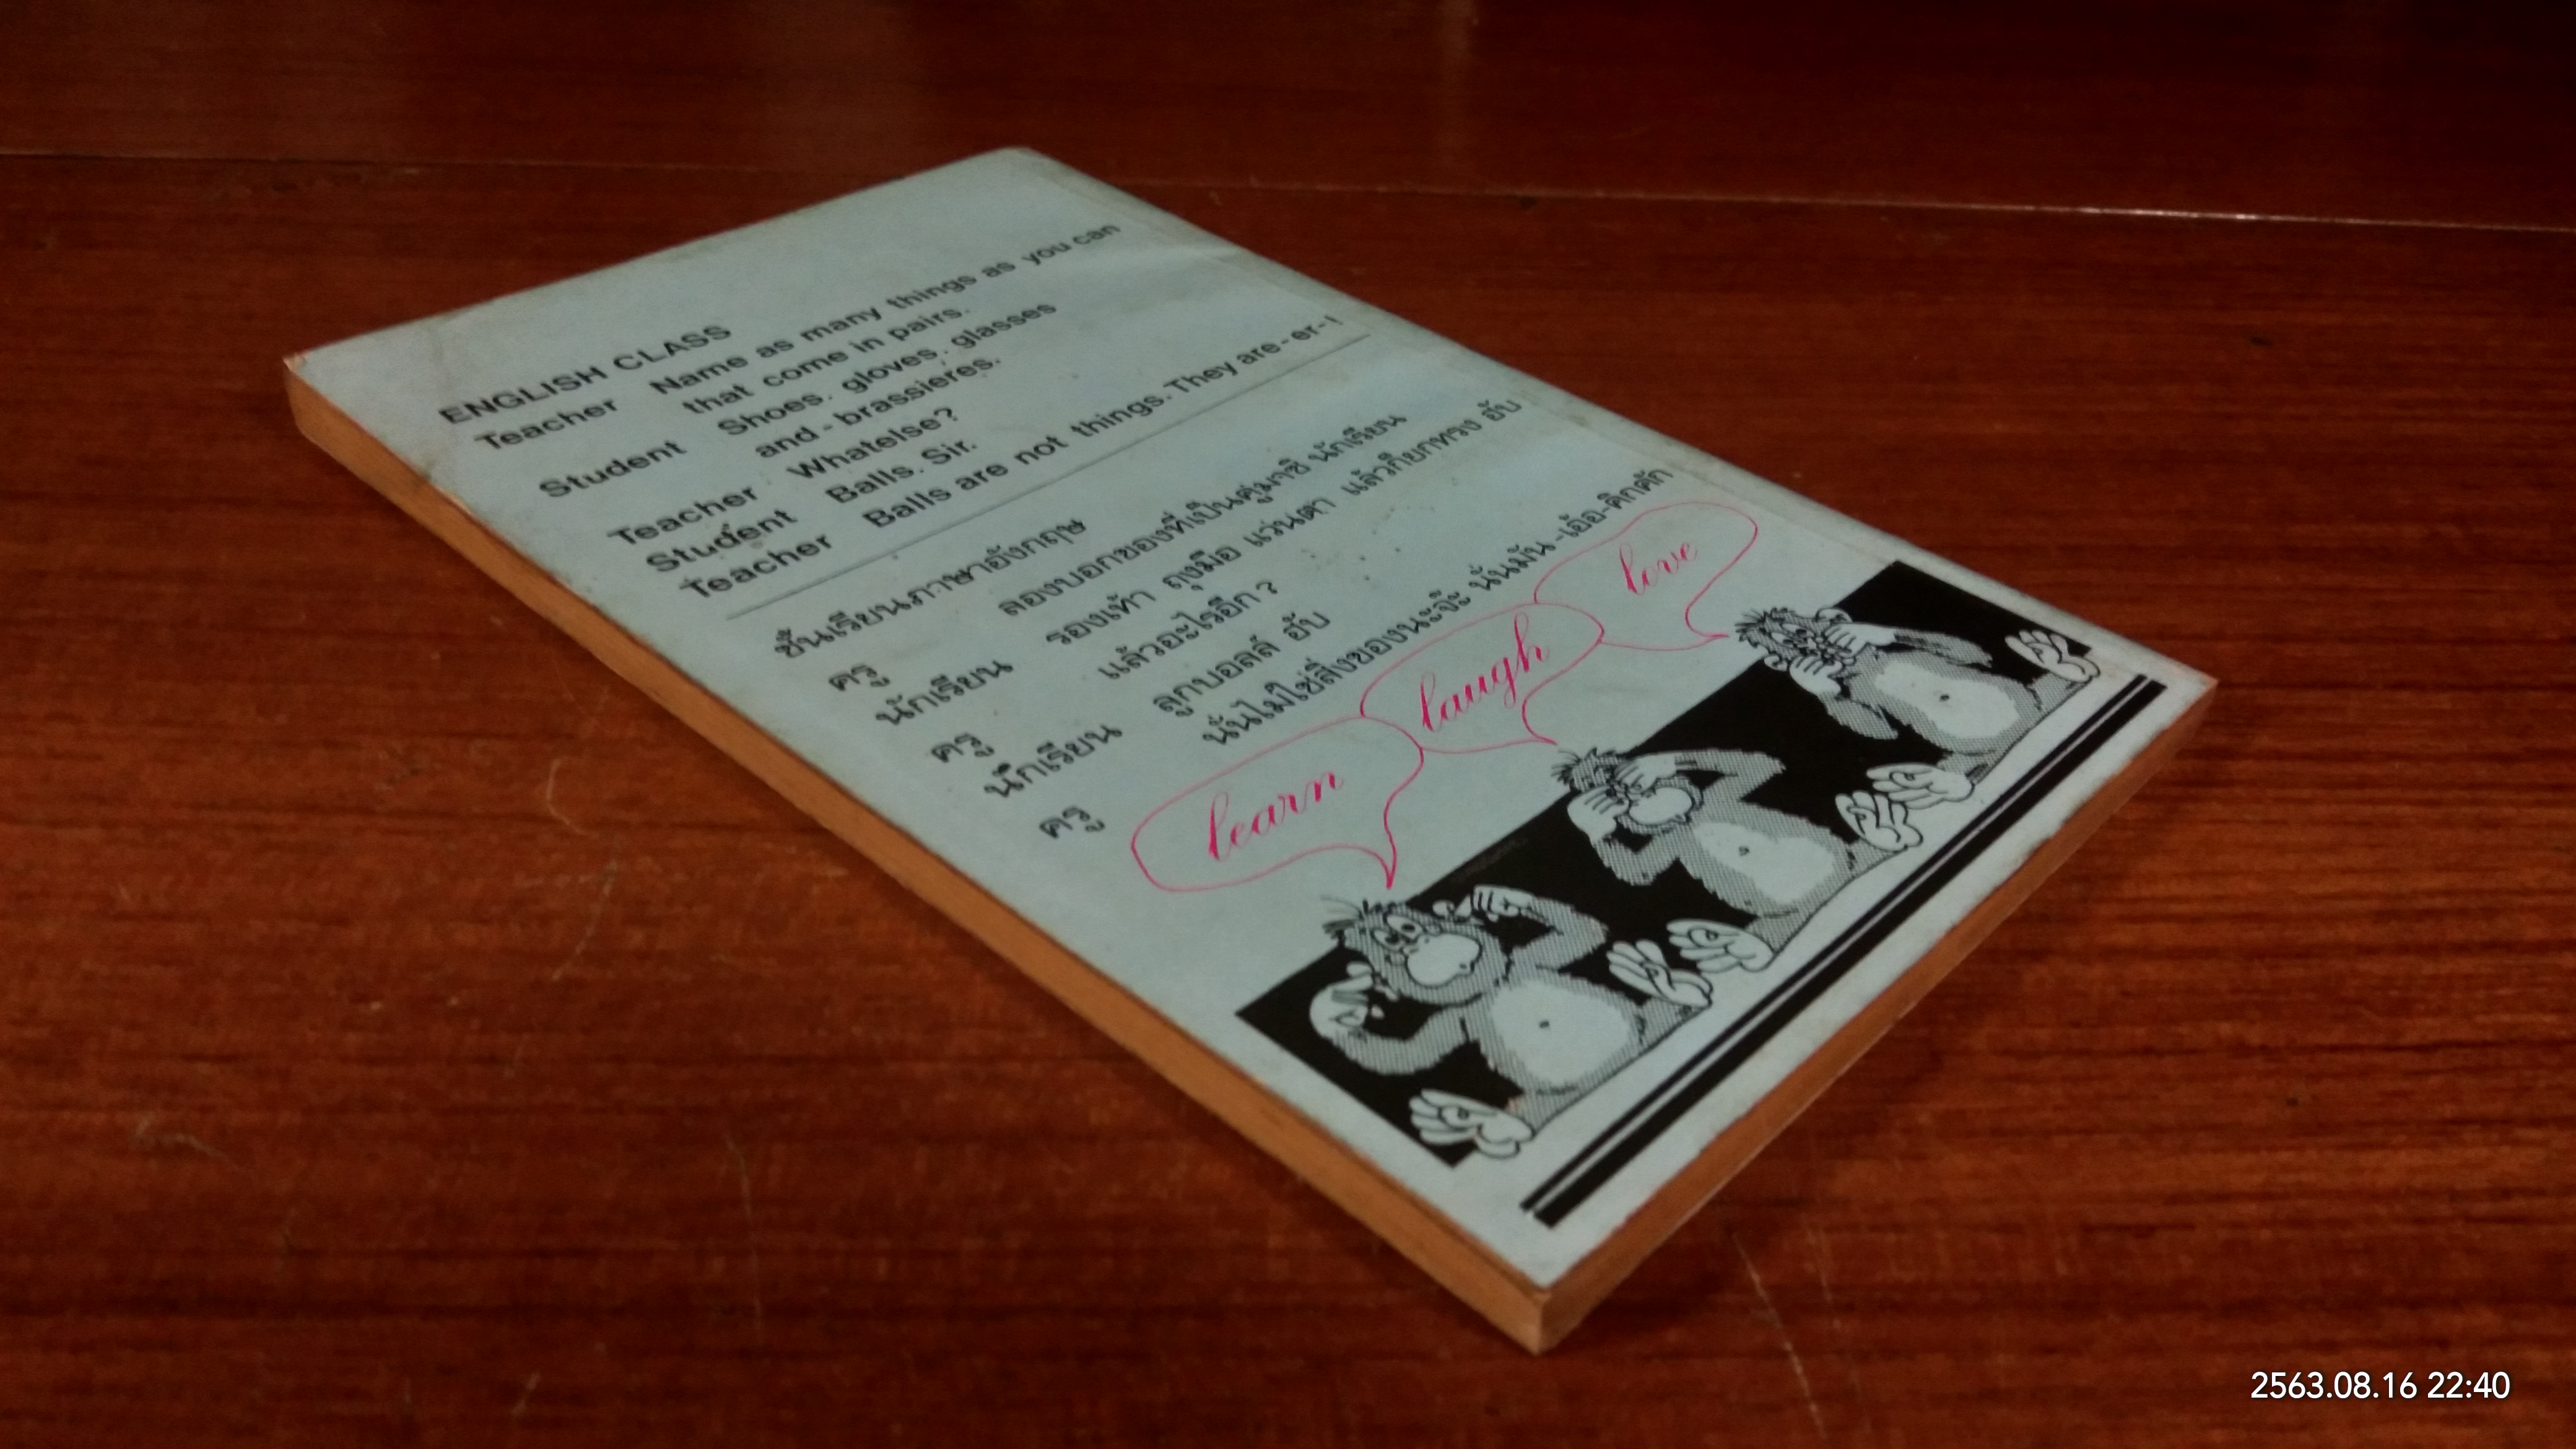 ENGLISH CLASS
Teacher Name as many things as you can
that come in pairs.
Student Shoes. gloves. glasses
and - brassieres.
Teacher Whatelse?
Student Balls. Sir.
Teacher Balls are not things. They are - er- !
ชั้นเรียนภาษาอังกฤษ
ครู ลองบอกของที่เป็นคู่มาซิ นักเรียน
นักเรียน รองเท้า ถุงมือ แว่นตา แล้วก็ยกทรง ฮับ
ครู แล้วอะไรอีก ?
นักเรียน ลูกบอลล์ ฮับ
ครู นั่นไม่ใช่สิ่งของนะจ๊ะ นั่นมัน -เอ้อ-คิกคัก
learn
laugh
love
2563.08.16 22:40